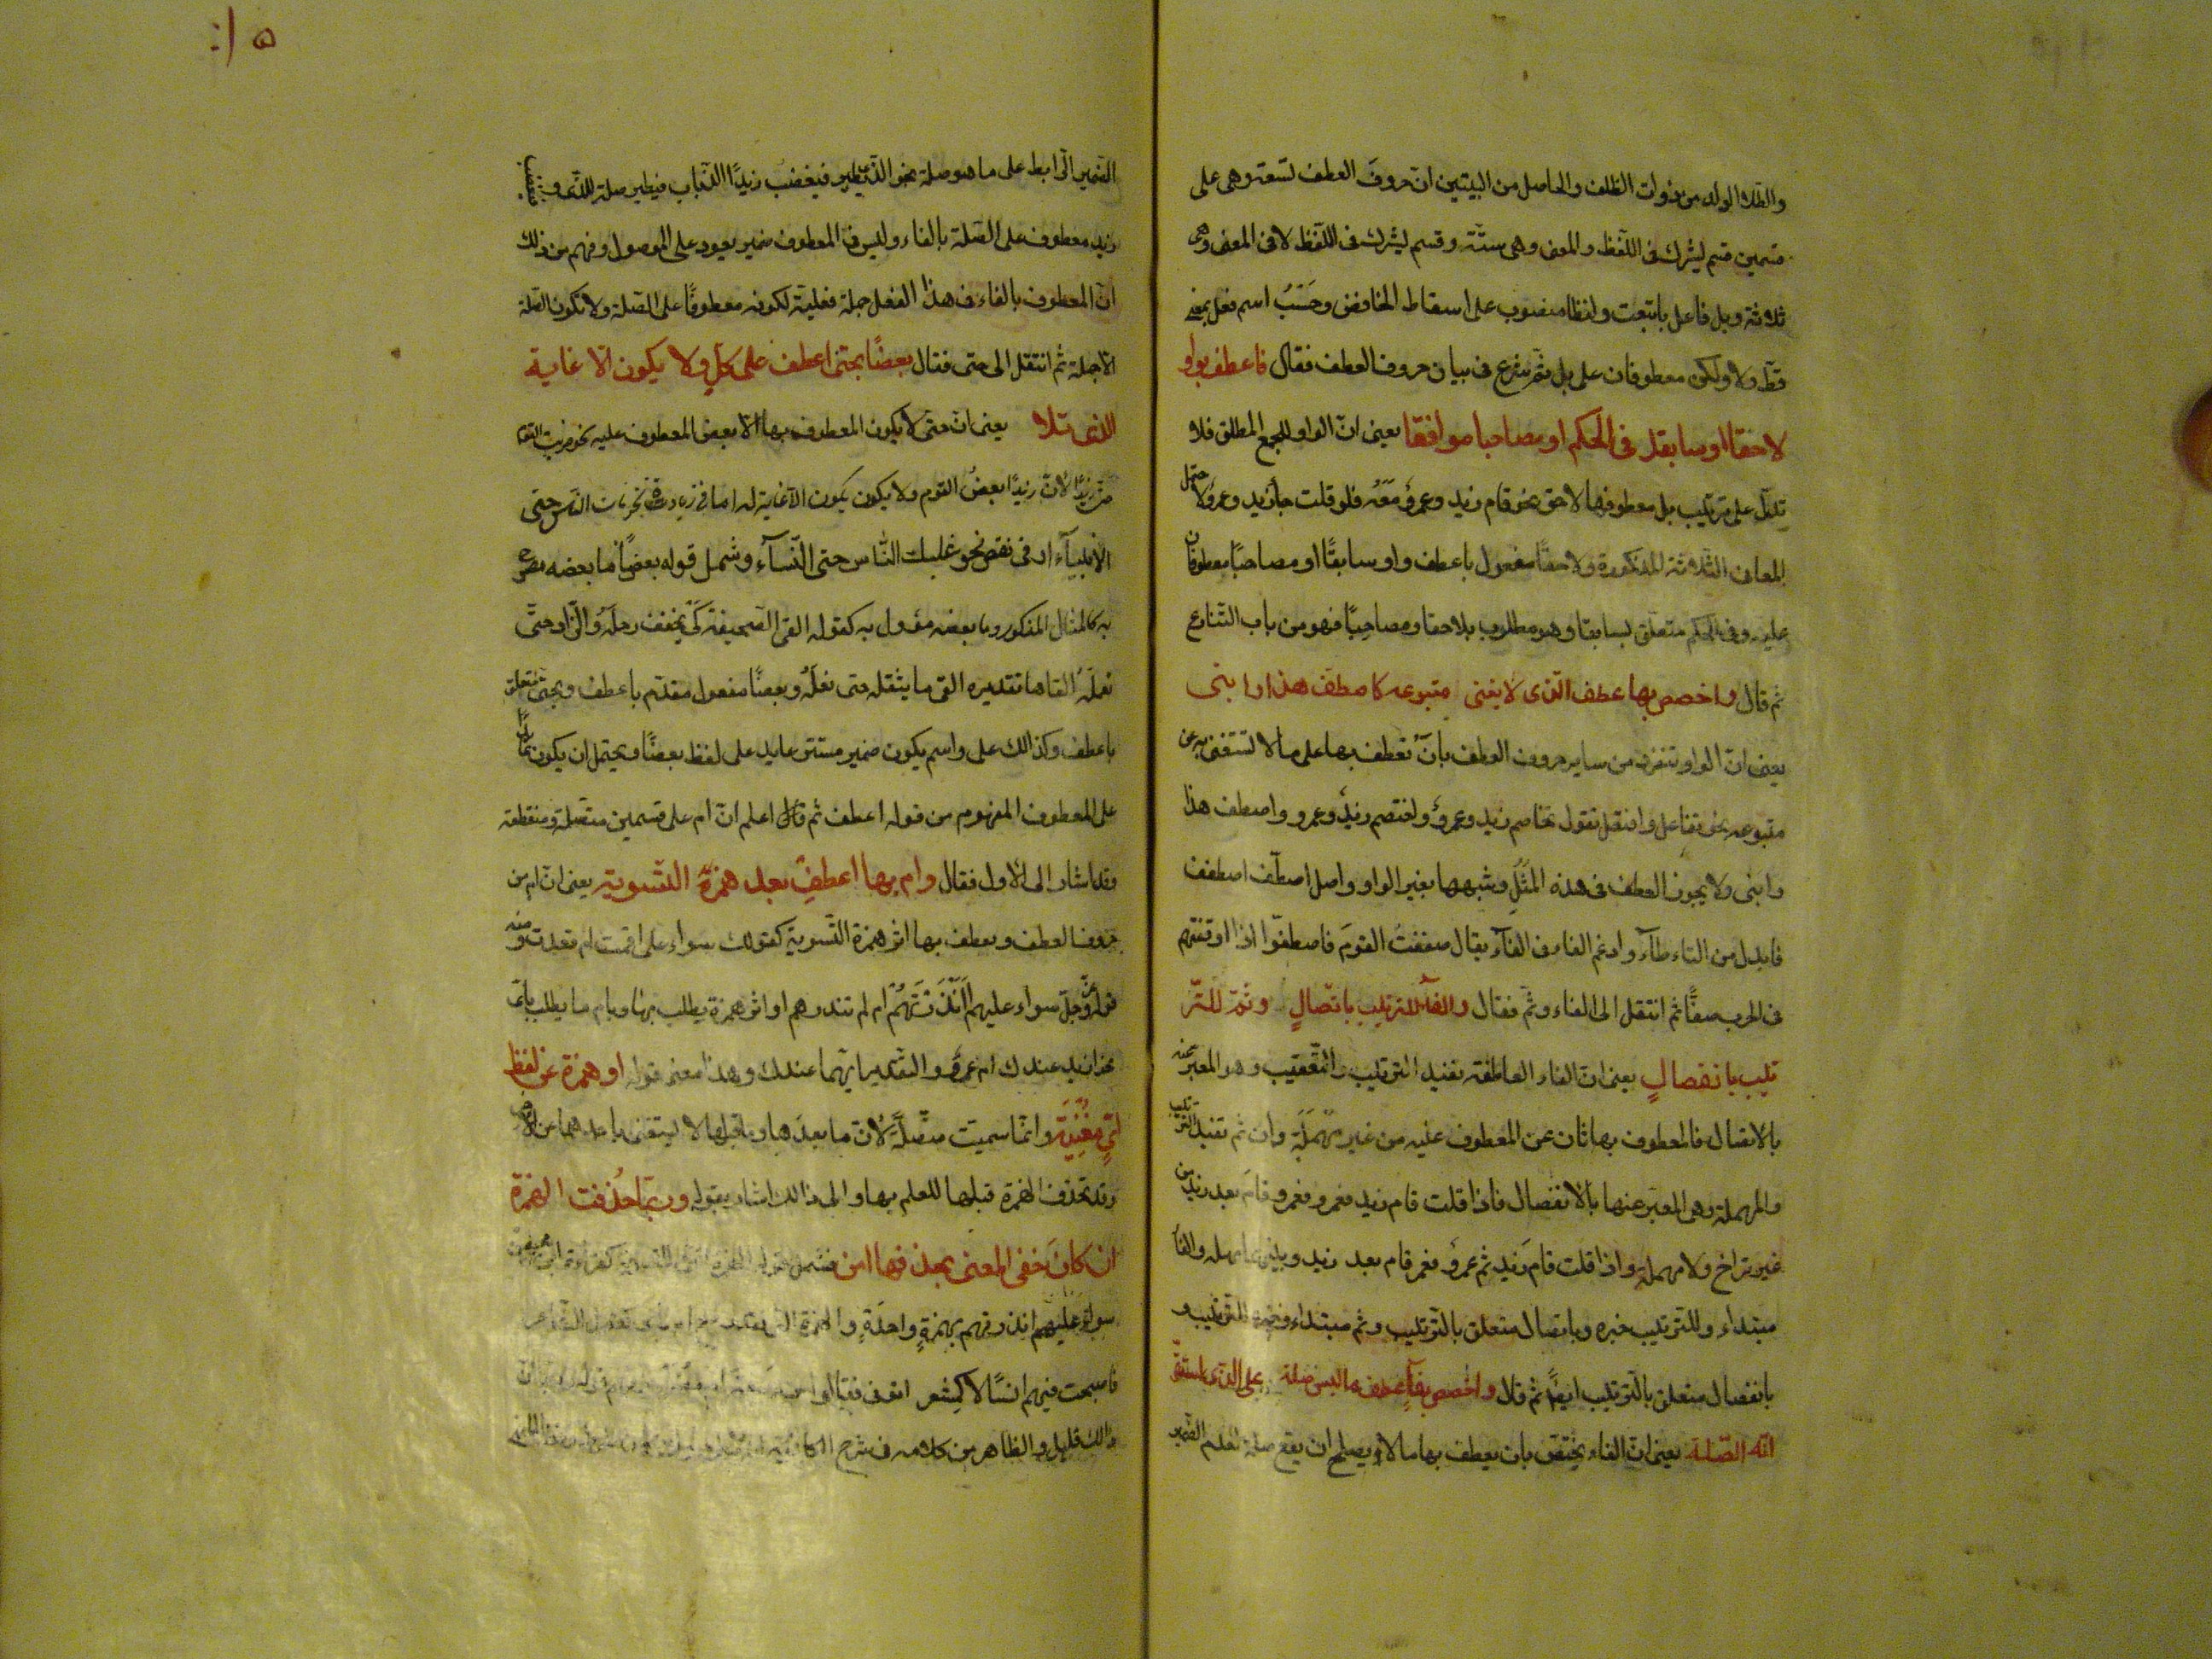 والطلا الولد من ذوات الظلف والحاصل من البيتين ان حروف العطف تسعة وهى على
قسمين قسم يشرك فى اللفظ والمعنى وهى ستة وقسم يشرك فى اللفظ لا فى المعنى وهى
ثلاثة وبل فاعل باتبعت ولفظا منصوب على اسقاط الخافض وحسب اسم فعل بمعنى
قط ولا ولكن معطوفان على بل ثم شرع فى بيان حروف العطف فقال فاعطف بواو
لاحقا او سابقا فى الحكم او مصاحبا موافقا يعنى ان الواو للجمع المطلق فلا
تدل على ترتيب بل معطوفها لاحق نحو قام زيد وعمرو معه فلو قلت جا زيد وعمرو لاحتمل
المعانى الثلاثة المذكورة ولاحقا مفعول باعطف واو سابقا او مصاحبا معطوفان
عليه وفى الحكم متعلق بسابقا وهو مطلوب بلاحقا ومصاحبا فهو من باب التنازع
ثم قال واخصص بها عطف الذى لا يغنى متبوعه كاصطف هذا وابنى
يعنى ان الواو تنفرد من ساير حروف العطف بان تعطف بها على ما لا تستغنى به عن
متبوعه نحو تفاعل وافتعل تقول تخاصم زيد وعمرو واختصم زيد وعمرو واصطف هذا
وابنى ولا يجوز العطف فى هذه المثل وشبهها بغير الواو واصل اصطف اصطفف
فابدل من التاء طاء وادغم الفاء فى الفاء يقال صففت القوم فاصطفوا اذا اوقفتهم
فى الحرب صفا ثم انتقل الى الفاء وثم فقال والفاء للترتيب باتصال وثم للتر
تيب بانفصال يعنى ان الفاء العاطفة تفيد الترتيب والتعقيب وهو المعبر عنه
بالاتصال فالمعطوف بها ثان عن المعطوف عليه من غير مهملة وان ثم تفيد الترتيب
والمهملة وهى المعبر عنها بالانفصال فاذا قلت قام زيد فعمرو فعمرو قام بعد زيد من
غير تراخ ولا مهملة واذا قلت قام زيد ثم عمرو فعمرو قام بعد زيد وبينهما مهلة والفا
مبتداء وللترتيب خبره وباتصال متعلق بالترتيب وثم مبتداء وخبره للترتيب و
بانفصال متعلق بالترتيب ايضا ثم قال واخصص بفاء عطف ما ليس صلة على الذى استقر
انه الصلة يعنى ان الفاء يختص بان يعطف بها ما لا يصلح ان يقع صلة لعدم الضمير
الضمير الرابط على ما هو صلة نحو الذى يطير فيغضب زيدا الذباب فيطير صلة للذى و يغضب
زيد معطوف على الصلة بالفاء وليس فى المعطوف ضمير يعود على الموصول وفهم من ذلك
ان المعطوف بالفاء فى هذا الفصل جملة فعلية لكونه معطوفا على الصلة ولا تكون الصلة
الا جملة ثم انتقل الى حتى فقال بعضا بحتى اعطف على كل ولا يكون الا غاية
الذى تلا يعنى ان حتى لا يكون المعطوف بها الا بعض المعطوف عليه نحو ضربت القوم
حتى زيدا لان زيدا بعض القوم ولا يكون يكون الا غاية له اما فى زيادة نحو مات الناس حتى
الانبياء او فى نقص نحو غلبك الناس حتى النساء وشمل قوله بعضا ما بعضه مصرح
به كالمثال المذكور وما بعضه مؤول به كقوله القى الصحيفة كى يخفف رحله والزاد حتى
نعله القاها تقديره القى ما يثقله حتى نعله وبعضا مفعول مقدم باعطف وبحتى متعلق
باعطف وكذالك على واسم يكون ضمير مستتر عايد على لفظ بعضا ويحتمل ان يكون عائدا
على المعطوف المفهوم من قوله اعطف ثم قال اعلم ان ام على قسمين متصلة ومنقطعة
وقد اشار الى الاول فقال وام بها اعطف بعد همزة التسوية يعنى ان ام من
حروف العطف ويعطف بها اثر همزة التسوية كقولك سواء على اقمت ام قعدت ومنه
قوله عز وجل سواء عليهم اانذرتهم ام لم تنذرهم او اثر همزة يطلب بها وبام ما يطلب باى
نحو ازيد عندك ام عمرو والتقدير ايهما عندك وهذا معنى قوله او همزة عن لفظ
اى مغنية وانما سميت متصلة لان ما بعدها وما قبلها لا يستغنى باحدهما عن الاخر
وقد تحذف الهمزة قبلها للعلم بها والى ذالك اشار بقوله وربما حذفت الهمزة
ان كان خفى المعنى بحذفها امن فشمل قوله الهمزة
سواء عليهم انذرتهم بهمزة واحدة والهمزة التى
فاصبحت فيهم انسا لا كمعشر اتونى فقالوا من
وذلك قليل والظاهر من كلامه فى شرح الكافية
١٥